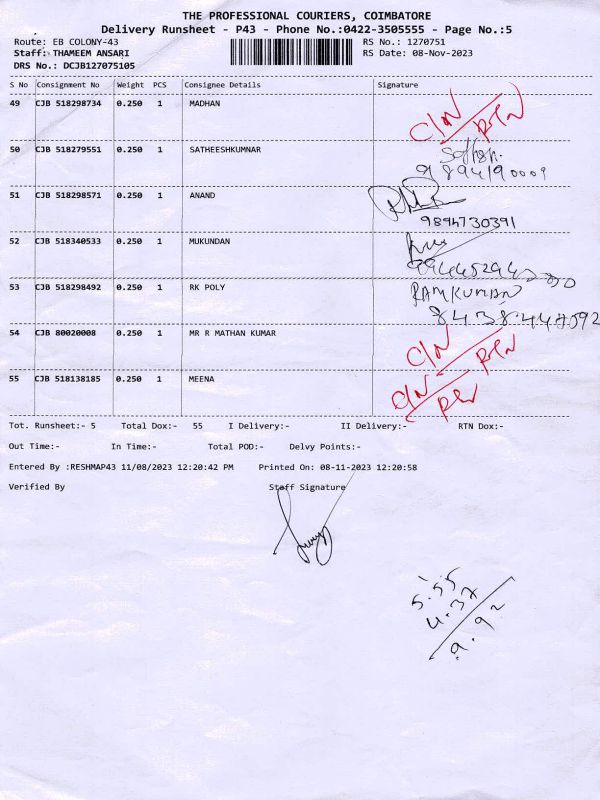 THE PROFESSIONAL COURIERS, COIMBATORE
Delivery Runsheet - P43 - Phone No.:0422-3505555 - Page No.:5
Route: EB COLONY-43 RS No.: 1270751
Staff: THAMEEM ANSARI RS Date: 08-Nov-2023
DRS No.: DCJB127075105
S No Consignment No Weight PCS Consignee Details Signature
49 CJB 518298734 0.250 1 MADHAN C/N RTN
50 CJB 518279551 0.250 1 SATHEESHKUMNAR
9894190009
51 CJB 518298571 0.250 1 ANAND
9894730391
52 CJB 518340533 0.250 1 MUKUNDAN
53 CJB 518298492 0.250 1 RK POLY RAMKUMAR
54 CJB 80020008 0.250 1 MR R MATHAN KUMAR C/N RTN
55 CJB 518138185 0.250 1 MEENA C/N
Tot. Runsheet:- 5 Total Dox:- 55 I Delivery:- II Delivery:- RTN Dox:-
Out Time:- In Time:- Total POD:- Delvy Points:-
Entered By :RESHMAP43 11/08/2023 12:20:42 PM Printed On: 08-11-2023 12:20:58
Verified By Staff Signature
5.55
4.37
9.92